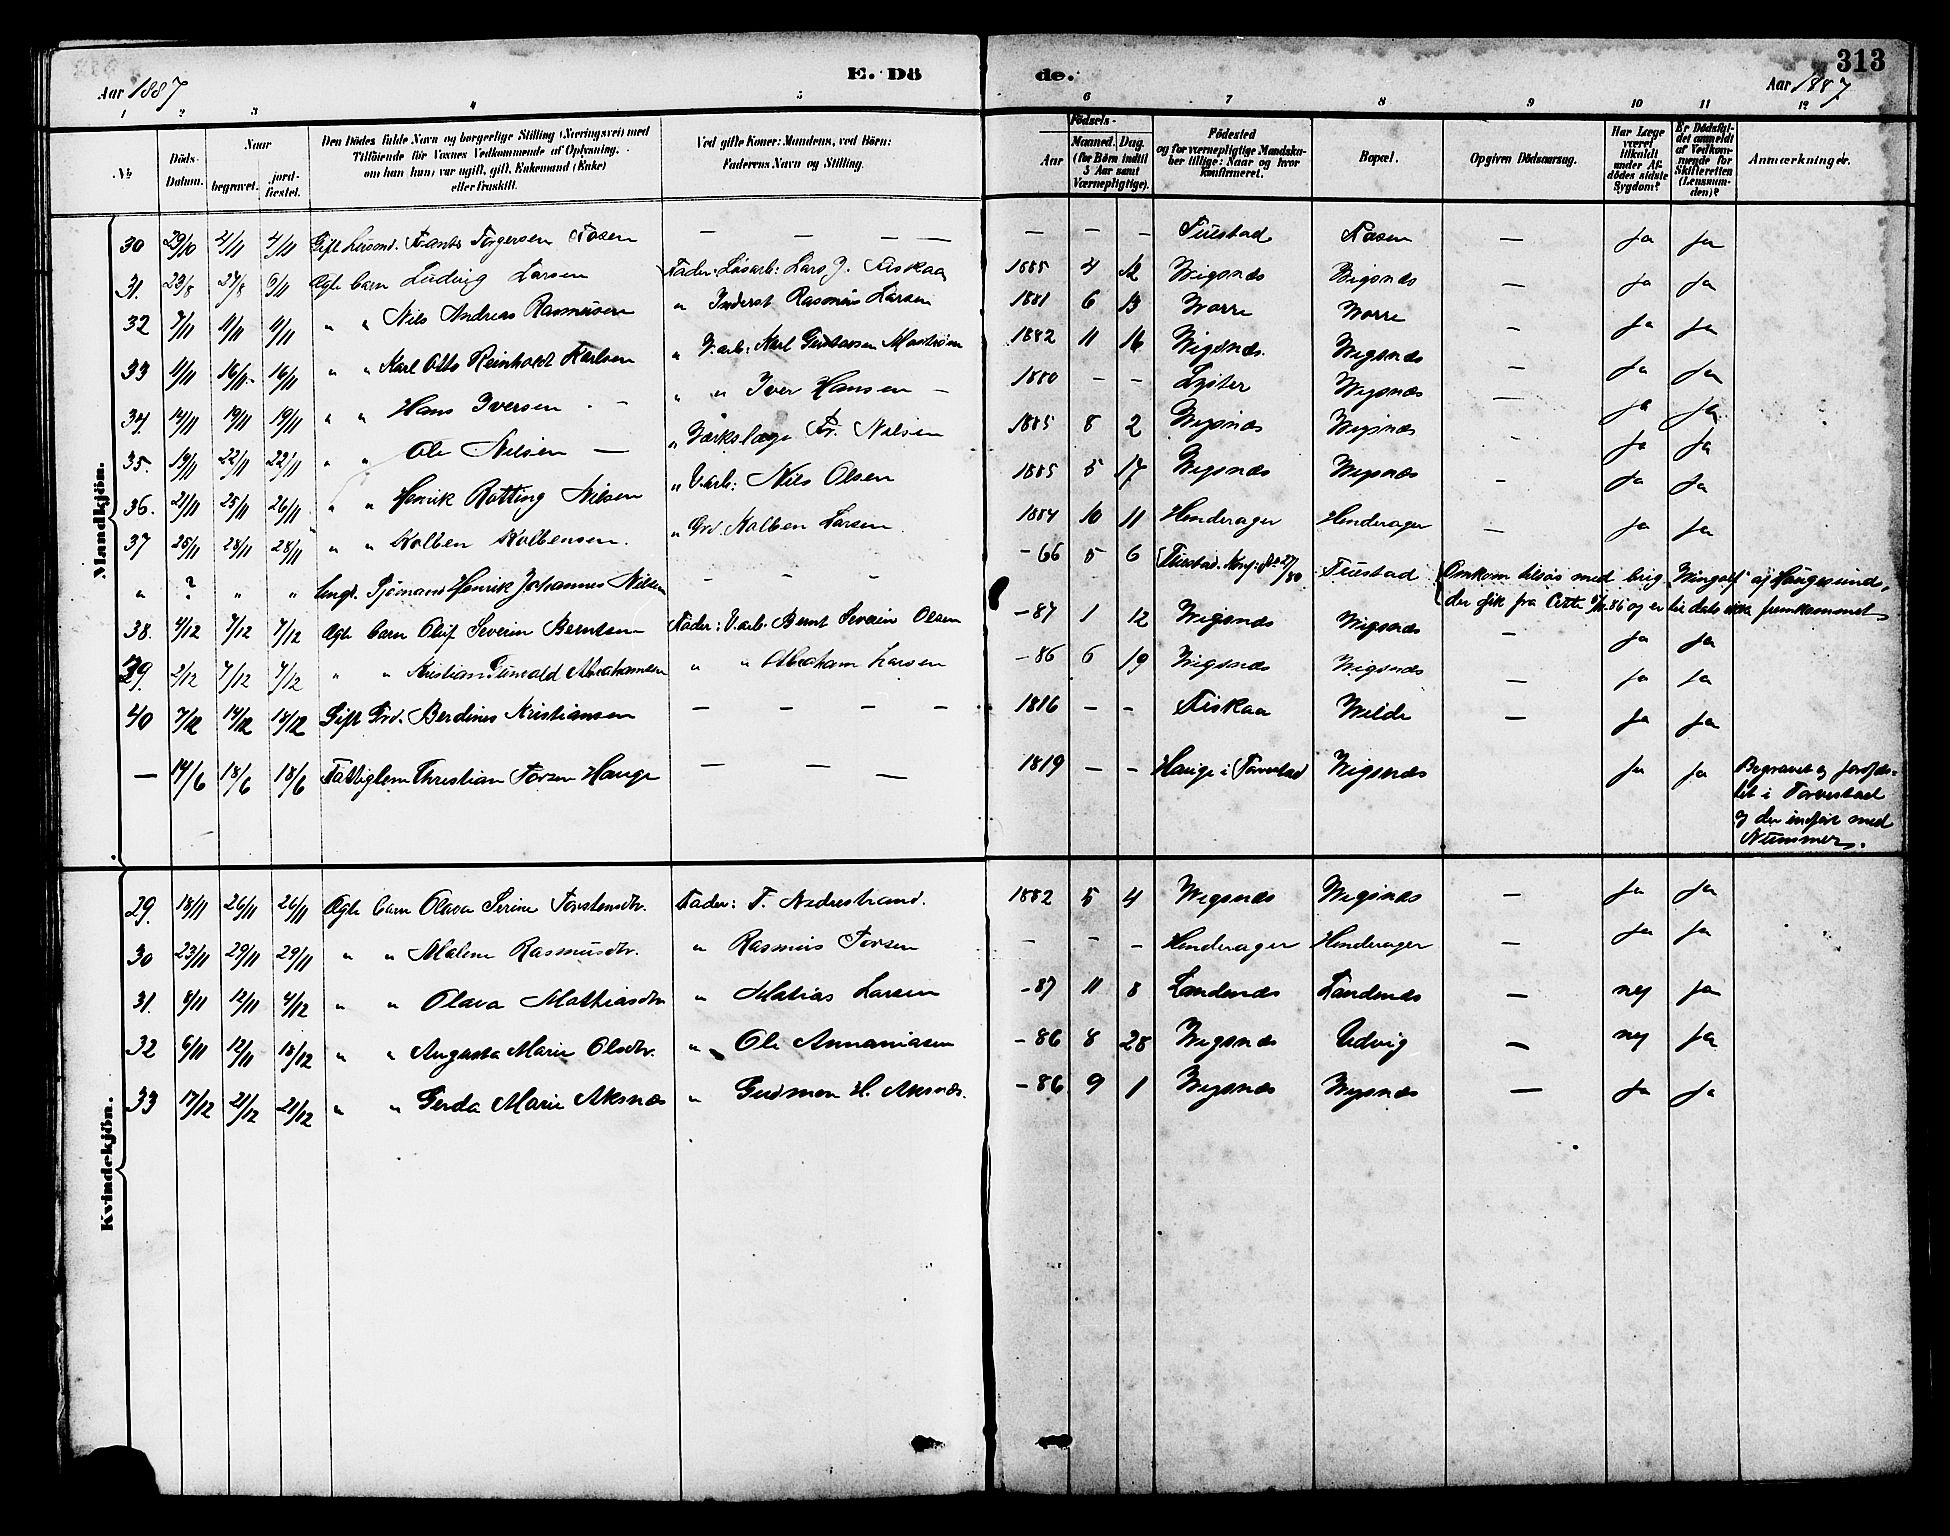 313
E. Döde.
Aar 1887
Aar 1887
1 2 3 4 5 6 7 8 9 10 11 12
№
Döds-Datum.
Naar
begravet.
jord-fæstet.
Den Dödes fulde Navn og borgerlige Stilling (Næringsvei) med Tilföiende för Voxnes Vedkommende af Oplysning, om han/hun, var ugift, gift, Enkemand (Enke) eller fraskilt.
Ved gifte Koner: Mandens, ved Börn: Faderens Navn og Stilling.
Födsels-
Aar
Maaned.
Dag.
(for Börn indtil 5 Aar samt Værnepligtige).
Födested og for værnepligtige Mandskaber tillige: Naar og hvor konfirmeret.
Bopæl.
Opgiven Dödsaarsag.
Har Læge været tilkaldt under Afdödes sidste Sygdom?
Er Dödsfaldet anmeldt af Vedkommende for Skifteretten (Lensmanden)?
Anmærkninger.
Mandkjön.
30 29/10 4/11 4/11 Gift — — — — — — — Fuistad — ja ja
31. 23/8 27/8 6/11 Ægte barn Ludvig Larsen Fader: Løsarb: Lars J. Fiskaa 1885 4 12 Vigsnæs Vigsnæs — ja ja
32 7/11 11/11 11/11 " " Nils Andreas Rasmusen " Inderst Rasmus Larsen 1881 6 13 Vorre Vorre — ja ja
33 11/11 16/11 16/11 " " Karl Otto Reinholdt Karlsen " V.arb: Karl Gustavsen 1882 11 16 Vigsnæs Vigsnæs — ja ja
34. 14/11 19/11 19/11 " " Hans Iversen — " " Iver Hansen — 1880 — — Lyster Vigsnæs — ja ja
35. 19/11 22/11 22/11 " " Ole Nilsen — " Værkslæge Fr. Nilsen 1885 8 2 Vigsnæs Vigsnæs — ja ja
36. 21/11 25/11 26/11 " " Henrik Rotting Nilsen " V.arb: Nils Olsen 1885 5 17 Vigsnæs Vigsnæs — ja ja
37 25/11 28/11 28/11 " " Kolben Kolbensen. " Grd. Kolben Larsen 1884 10 11 Hinderager Hinderager — ja ja
" ? " " Ungk. Sjömand Henrik Johannes Nilsen — — — -66 5 6 Fuistad Fuistad Omkom tilsøs med brig "Wingolf" af Haugesund,
der gik fra Cette 86 og er til dato ikke fremkommet
38. 4/12 7/12 7/12 Ægte barn Oluf Severin Berntsen Fader: V.arb. Bernt Severin Olsen -87 1 12 Vigsnæs Vigsnæs — ja ja
39. 2/12 7/12 7/12 " " Kristian Abrahamsen " " Abraham Larsen -86 6 19 Vigsnæs Vigsnæs — ja ja
40 7/12 14/12 18/12 Gift Grd. Berdines Kristiansen — — — — 1816 — — Fiskaa Velde — ja ja
— 14/6 18/6 18/6 Fattiglem Christian Torsen Hauge — — — 1819 — — Hauge i Torvestad Vigsnæs ja ja Begravet og jordfæs-
tet i Torvestad
og der indført med
Nummer.
Kvindekjön.
29. 18/11 26/11 26/11 Ægte barn Olava Serine Torstensdtr. Fader: T. Nedrestrand. 1882 5 4 Vigsnæs Vigsnæs — ja ja
30 23/11 29/11 29/11 " " Malene Rasmusdtr. " Rasmus Torsen — — — Hinderager Hinderager — ja ja
31. 8/11 12/11 4/12 " " Olava Mathiasdtr " Matias Larsen -87 11 8 Landenæs Landenæs — nej ja
32 6/11 12/11 18/12 " " Augusta Marie Olsdtr. " Ole Annaniasen -86 8 28 Vigsnæs Udvig — nej ja
33 17/12 21/12 21/12 " " Gerda Marie Aksnæs " Gudmon H. Aksnæs. -86 9 1 Vigsnæs Vigsnæs — ja ja